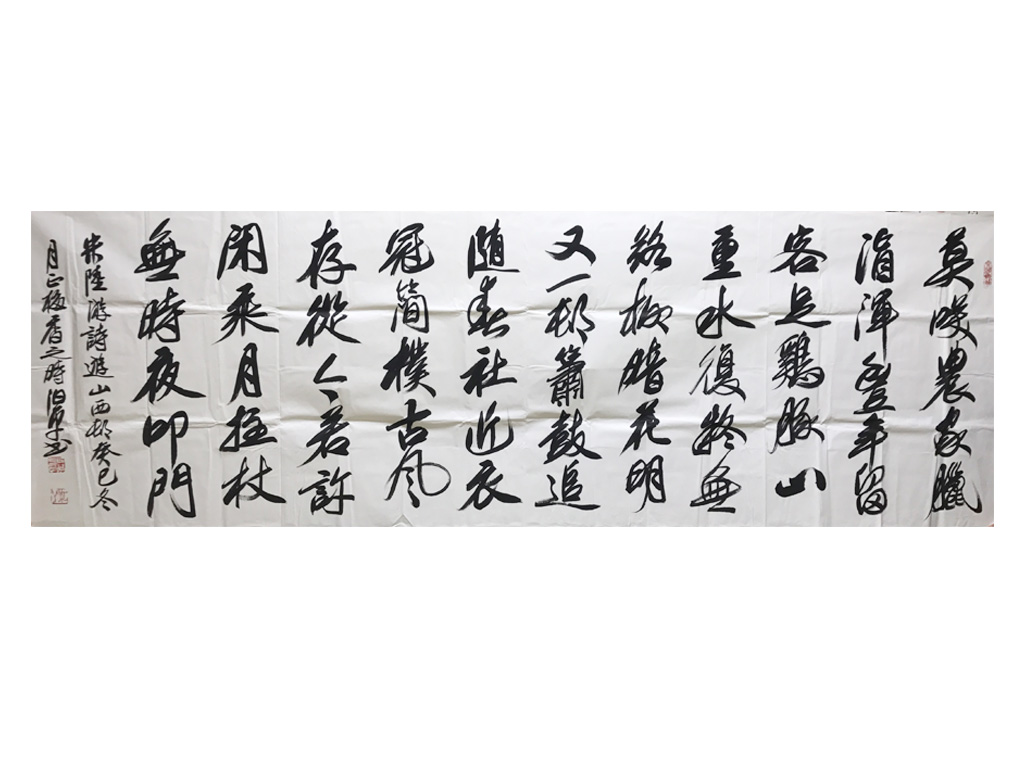 莫咲農家臘
酒渾豊年留
客足鷄豚山
重水復疑無
路柳暗花明
又一邨簫鼓追
隨春社近衣
冠簡樸古風
存從今若許
閑乘月拄杖
無時夜叩門
录陸游詩遊山西邨癸巳冬
月正梅香之時